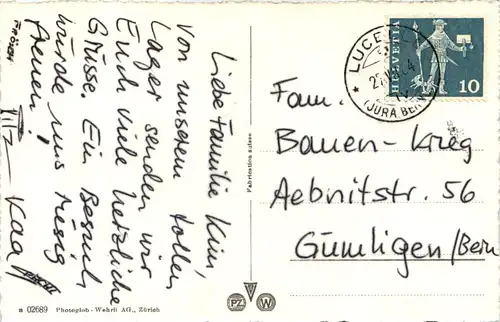 Liebe Familie Kim,
von unserem tollen
Lager senden wir
Euch viele herzliche
Grüsse. Ein Besuch
würde uns riesig
freuen!
Kaa
HELVETIA
10
LUCE
(JURA BER
Fam.
Bauen-Krieg
Aebnitstr. 56
Gümligen/Bern
Fabrication suisse
PZ W
n 02689 Photoglob-Wehrli AG., Zürich